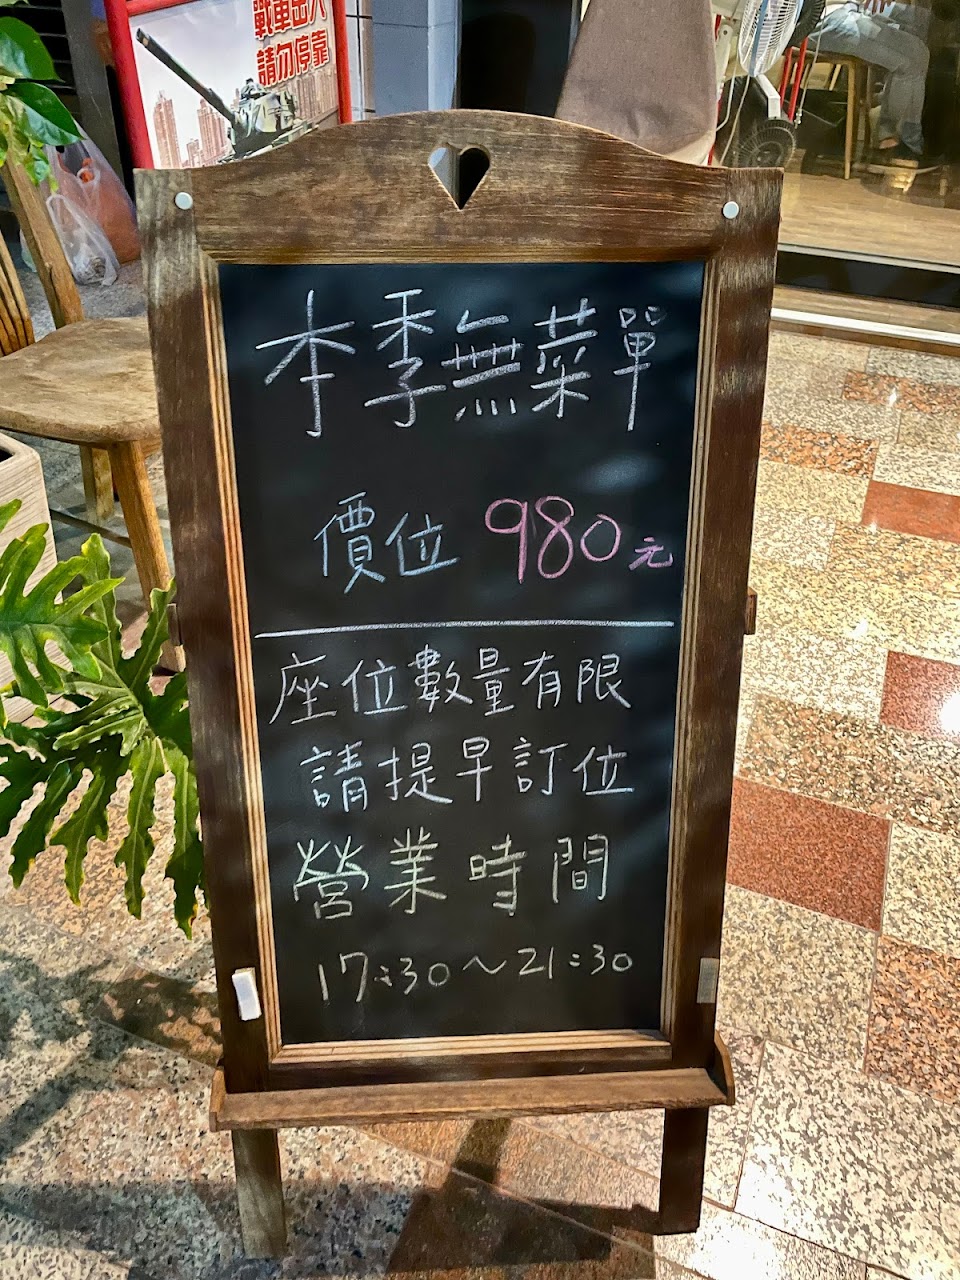 戰車出入
請勿停靠
本季無菜單
價位 980元
座位數量有限
請提早訂位
營業時間
17:30~21:30